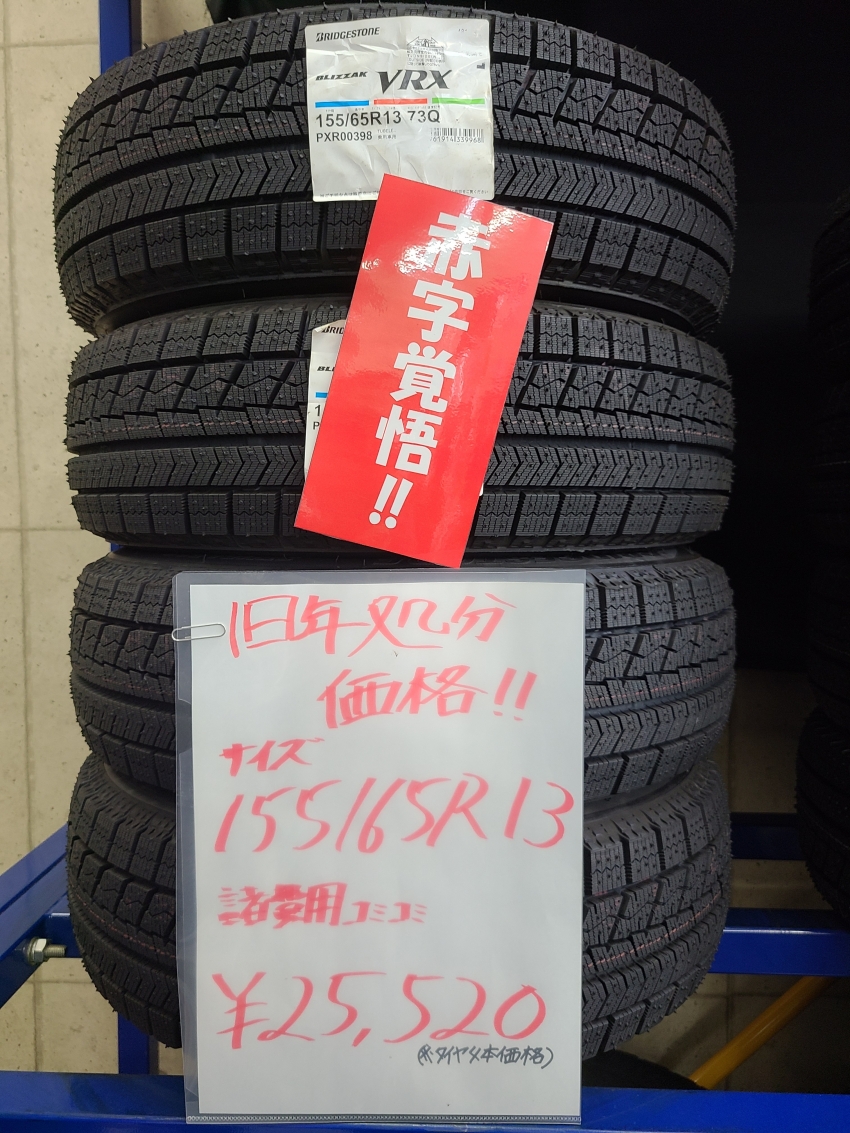 BRIDGESTONE
BLIZZAK VRX
155/65R13 73Q
PXR00398
赤字覚悟!!
旧年処分
価格!!
サイズ
155/65R13
諸費用コミコミ
¥25,520
(※タイヤ4本価格)